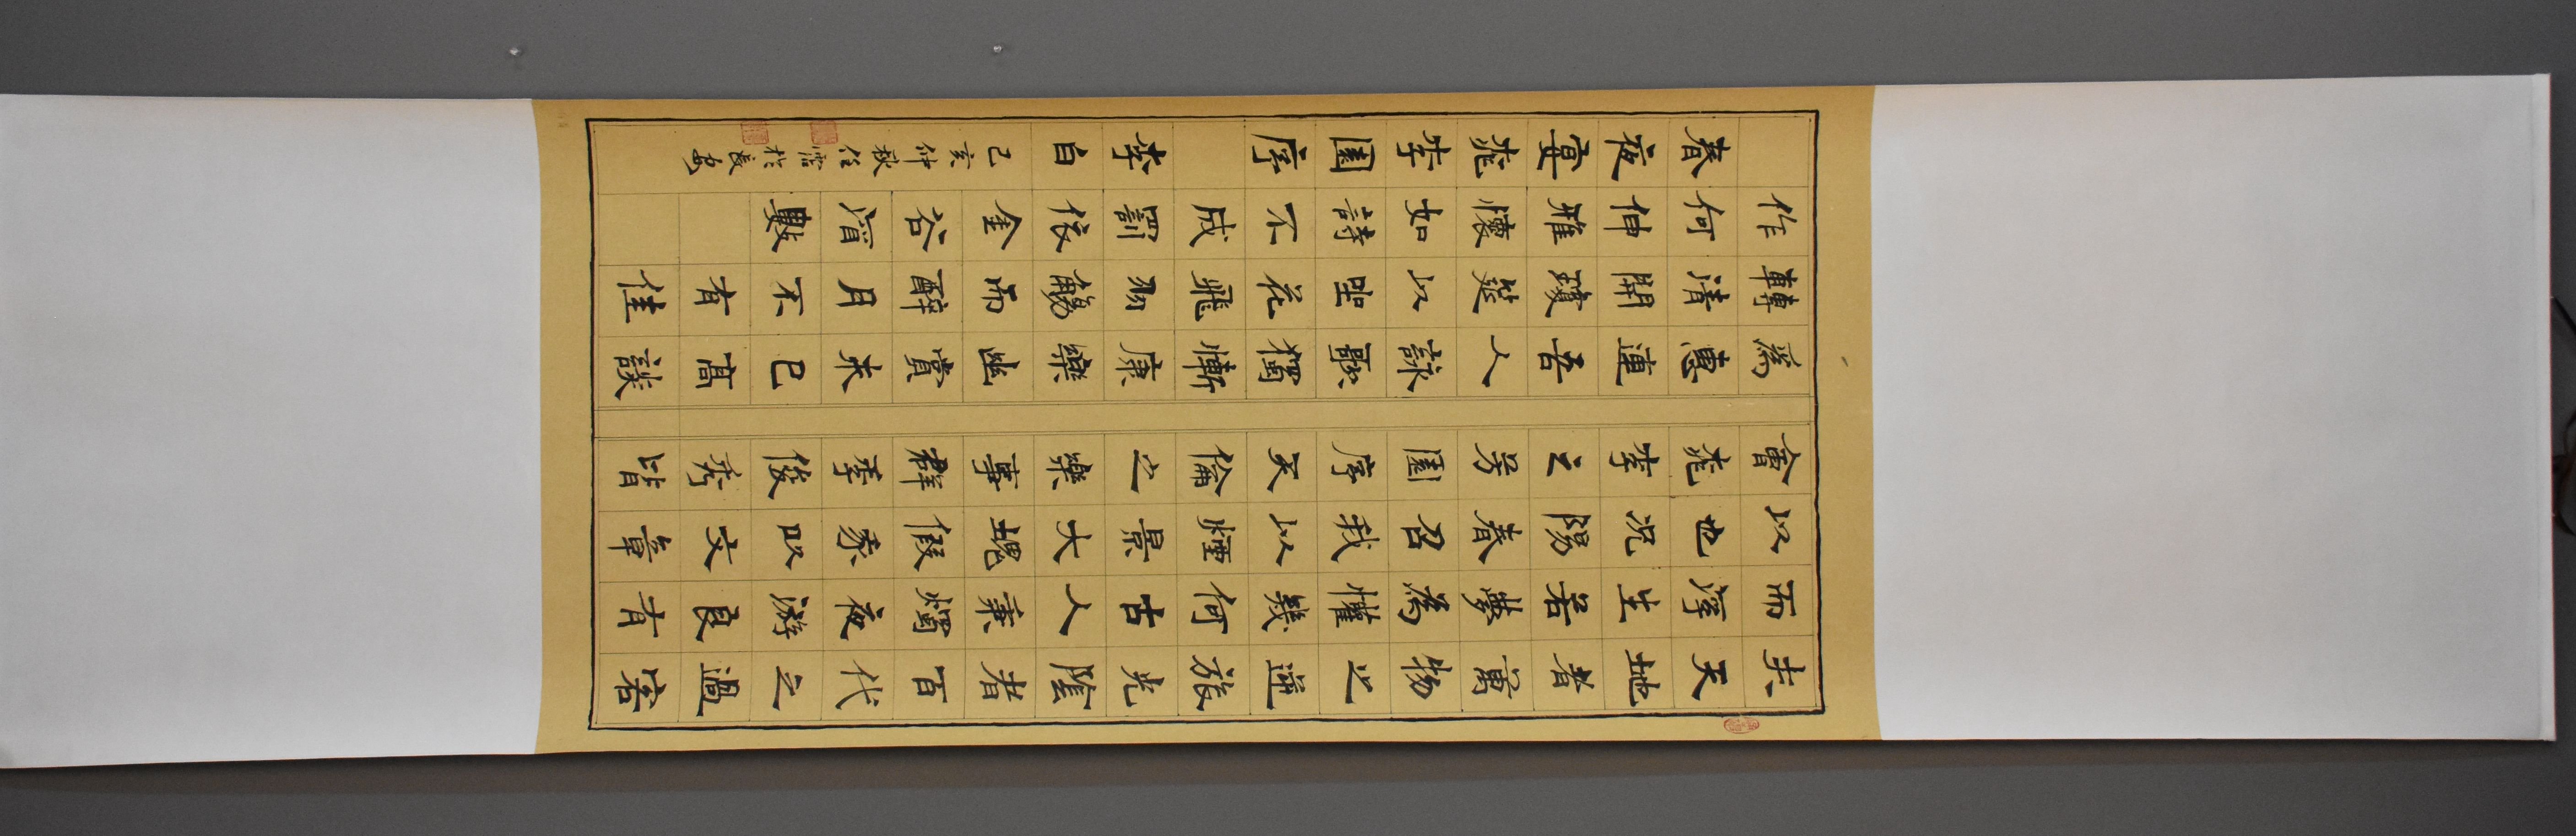 夫天地者萬物之逆旅光陰者百代之過客
而浮生若夢為懽幾何古人秉燭夜游良有
以也況陽春召我以煙景大塊假我以文章
會桃李之芳園序天倫之樂事群季俊秀皆
為惠連吾人詠歌獨慚康樂幽賞未已高談
轉清開瓊筵以坐花飛羽觴而醉月不有佳
作何伸雅懷如詩不成罰依金谷酒數
春夜宴桃李園序 李白 己亥仲秋任於長安